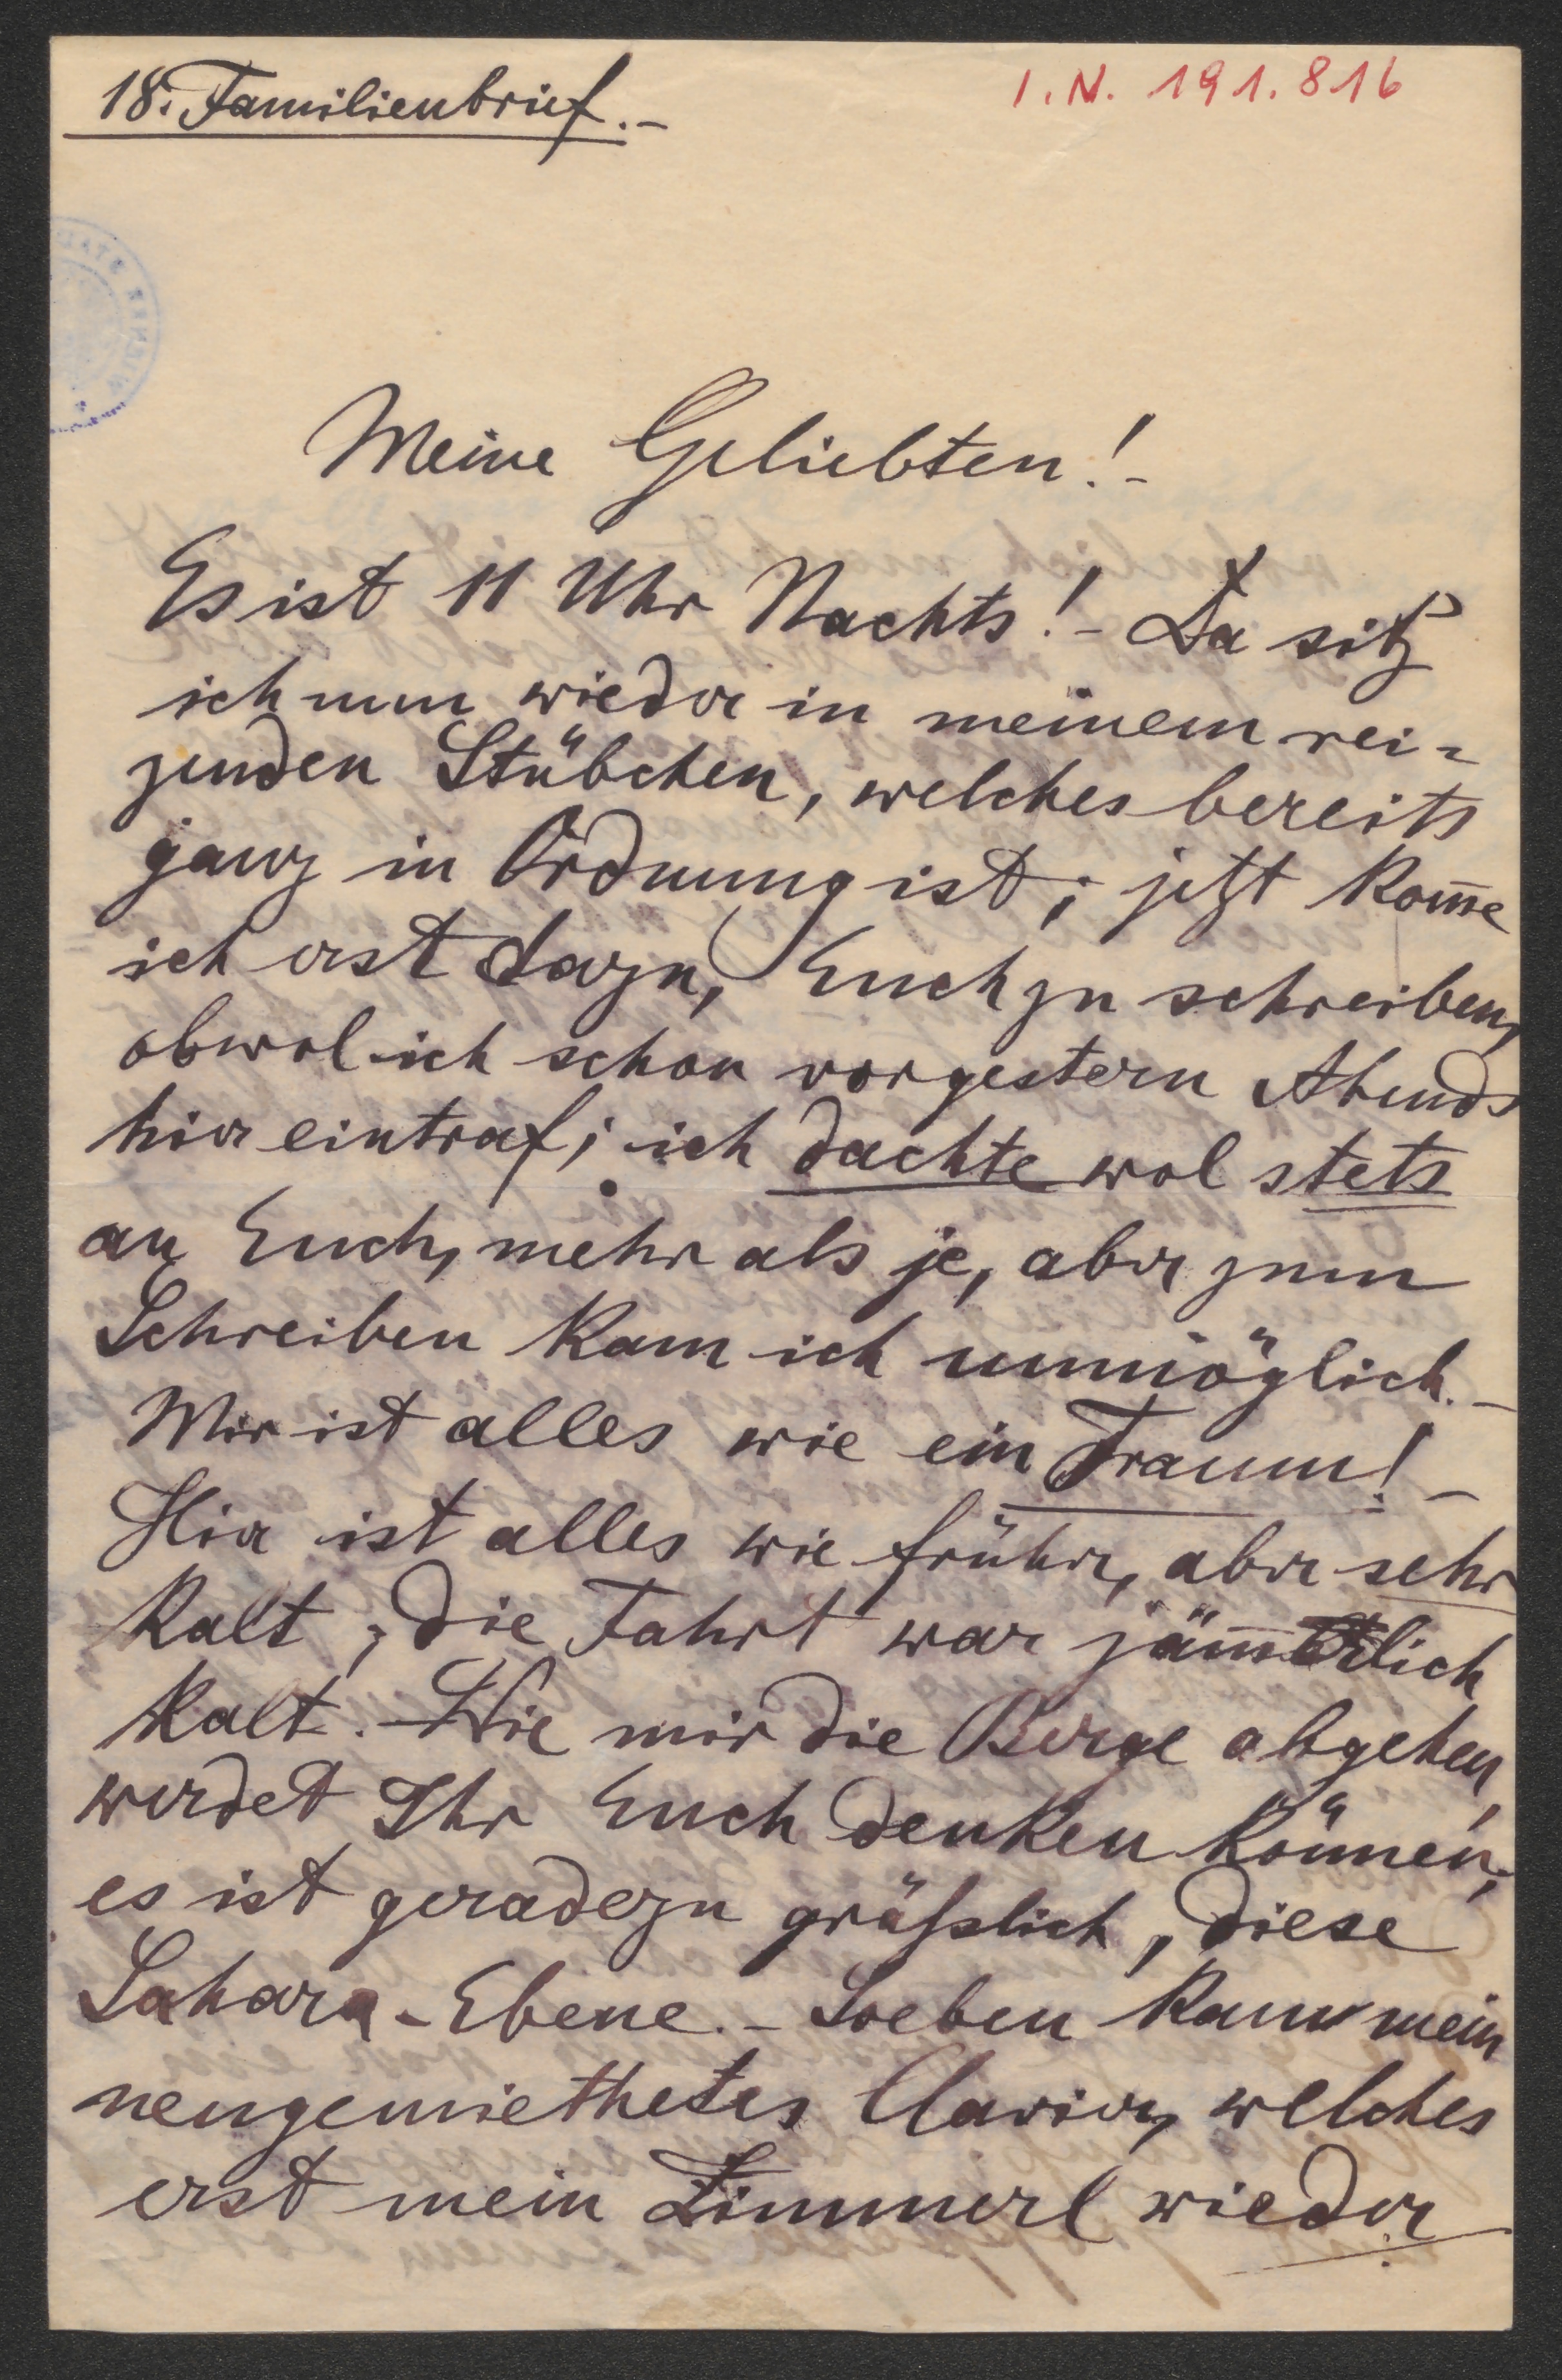 18. Familienbrief.-
I.N. 191.816
Meine Geliebten!-
Es ist 11 Uhr Nachts!- Da sitz
ich nun wieder in meinem rei-
zenden Stübchen, welches bereits
ganz in Ordnung ist; jetzt kom̅e
ich erst dazu, Euch zu schreiben,
obwol ich schon vorgestern Abends
hier eintraf; ich dachte wol stets
an Euch, mehr als je, aber zum
Schreiben kam ich unmöglich.-
Mir ist alles wie ein Traum!-
Hier ist alles wie früher, aber sehr
kalt; die Fahrt war jäm̅erlich
kalt.- Wie mir die Berge abgehen,
werdet Ihr Euch denken können;
es ist geradezu gräßlich, diese
Sahara-Ebene.- Soeben kam mein
neugemiethetes Clavier, welches
erst mein Zimmerl wieder